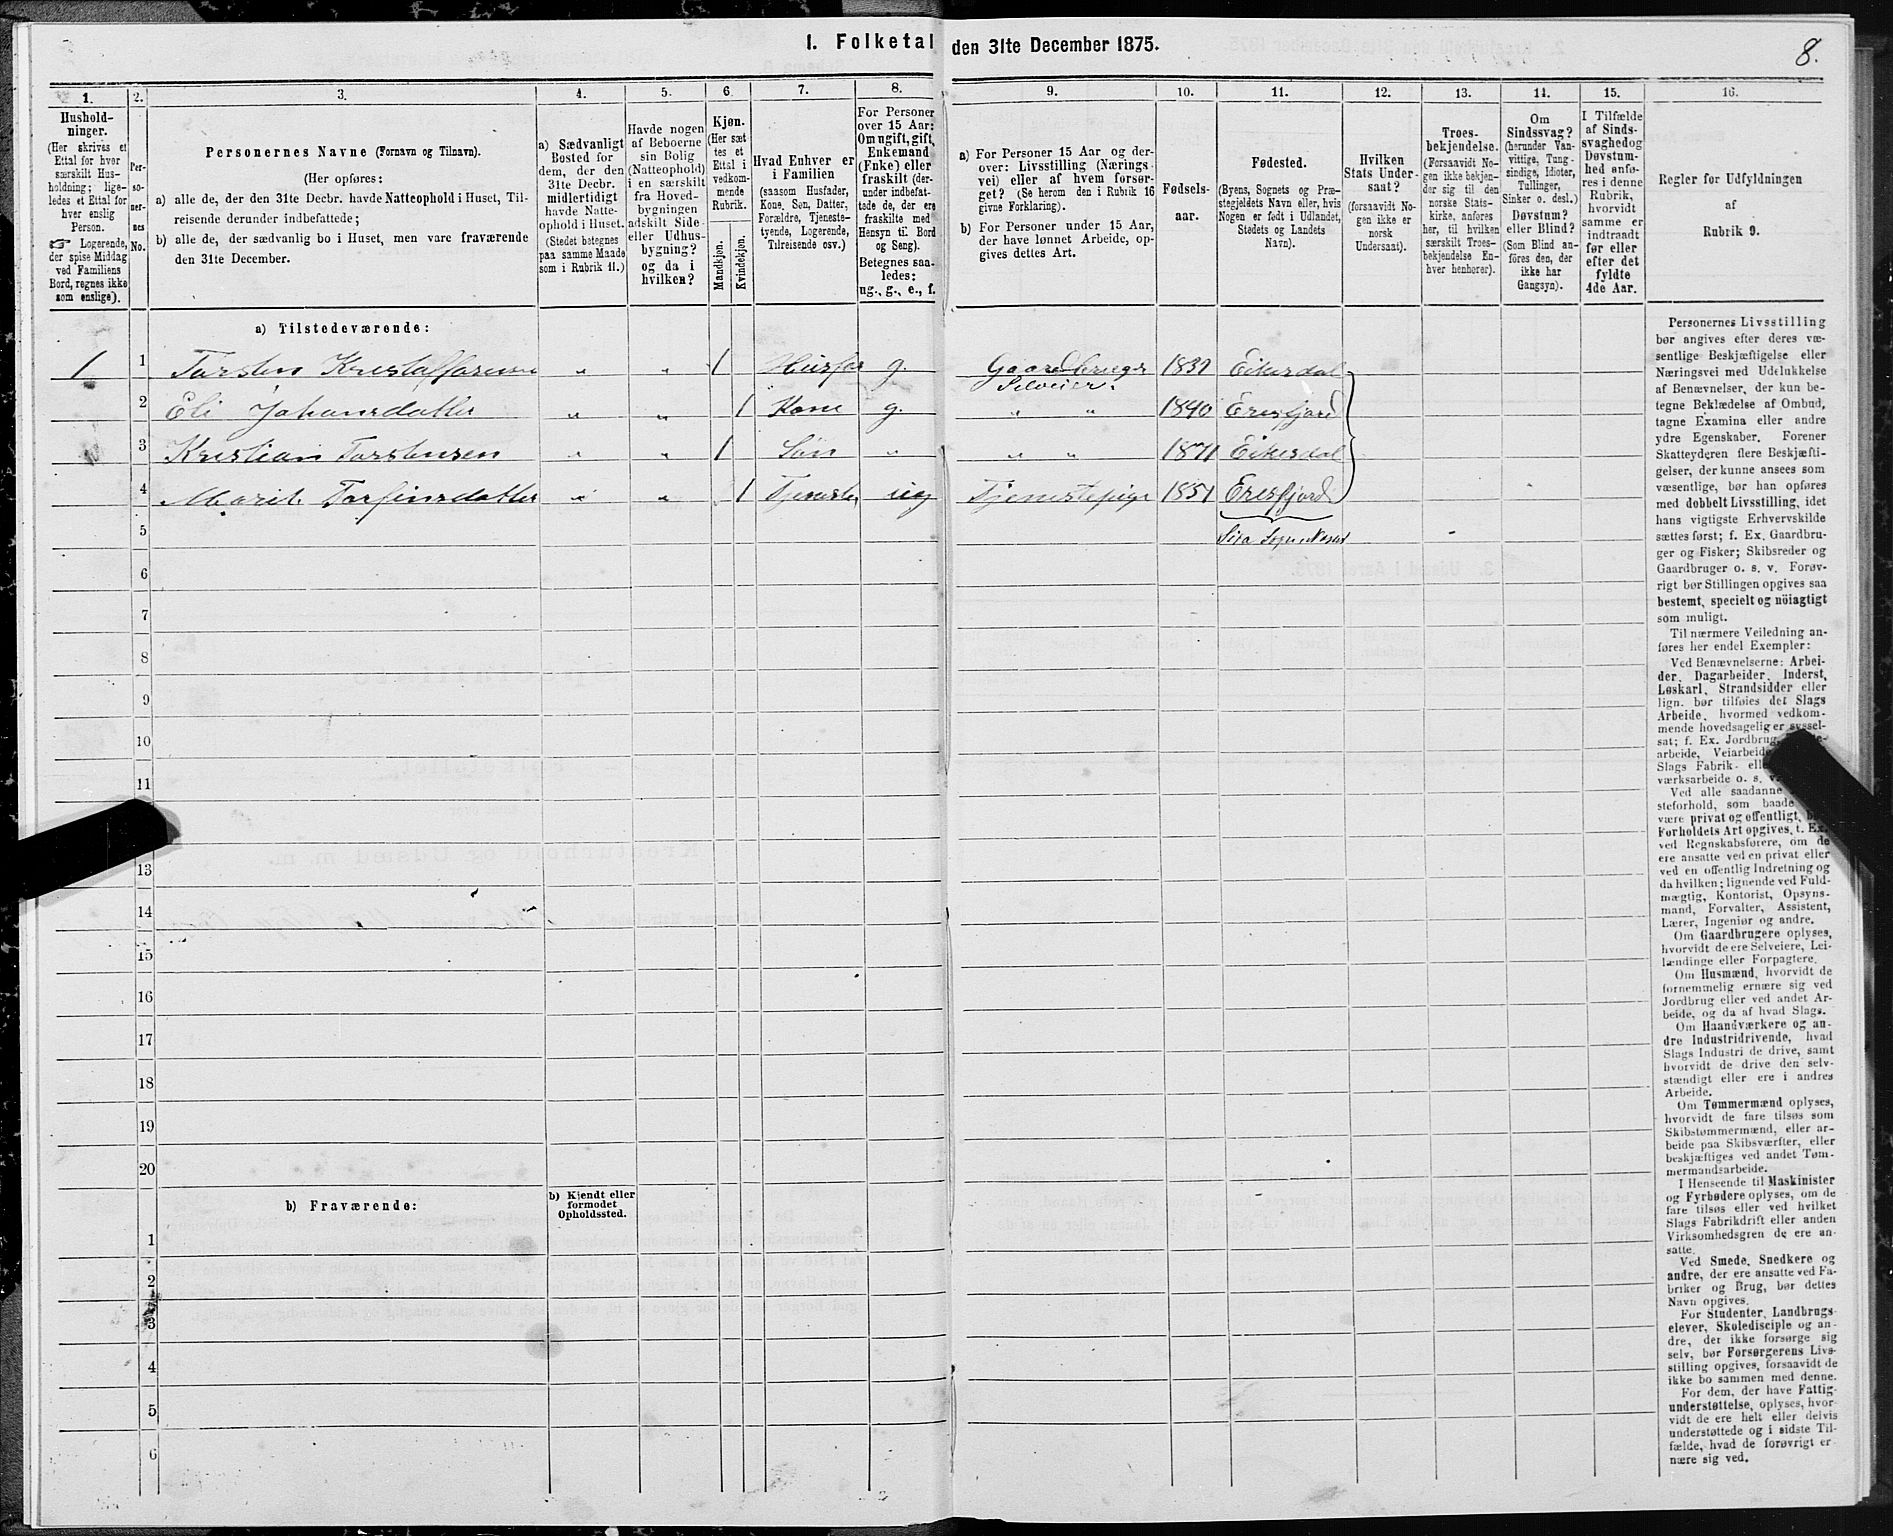 I. Folketal den 31te December 1875.
8.
1.
Hushold-
ninger.
(Her skrives et
Ettal for hver
særskilt Hus-
holdning; lige-
ledes et Ettal for
hver enslig
Person.
☞ Logerende,
der spise Middag
ved Familiens
Bord, regnes ikke
som enslige).
2.
Per-
so-
ner-
nes
No.
3.
Personernes Navne (Fornavn og Tilnavn).
(Her opføres:
a) alle de, der den 31te Decbr. havde Natteophold i Huset, Til-
reisende derunder indbefattede;
b) alle de, der sædvanlig bo i Huset, men vare fraværende
den 31te December.
4.
a) Sædvanligt
Bosted for
dem, der den
31te Decbr.
midlertidigt
havde Natte-
ophold i Huset.
(Stedet betegnes
paa samme Maade
som i Rubrik 11.)
5.
Havde nogen
af Beboerne
sin Bolig
(Natteophold)
i en særskilt
fra Hoved-
bygningen
adskilt Side-
eller Udhus-
bygning?
og da i
hvilken?
6.
Kjøn.
(Her sæt-
tes et
Ettal i
vedkom-
mende
Rubrik.
Mandkjøn.
Kvindekjøn.
7.
Hvad Enhver er
i Familien
(saasom Husfader,
Kone, Søn, Datter,
Forældre, Tjeneste-
tyende, Logerende,
Tilreisende osv.)
8.
For Personer
over 15 Aar:
Om ugift, gift,
Enkemand
(Enke) eller
fraskilt (der-
under indbefat-
tede de, der ere
fraskilte med
Hensyn til Bord
og Seng).
Betegnes saa-
ledes:
ug., g., e., f.
9.
a) For Personer 15 Aar og der-
over: Livsstilling (Nærings-
vei) eller af hvem forsør-
get? (Se herom den i Rubrik 16
givne Forklaring).
b) For Personer under 15 Aar,
der have lønnet Arbeide, op-
gives dettes Art.
10.
Fødsels-
aar.
11.
Fødested.
(Byens, Sognets og Præ-
stegjeldets Navn eller, hvis
Nogen er født i Udlandet,
Stedets og Landets
Navn).
12.
Hvilken
Stats Under-
saat?
(forsaavidt No-
gen ikke er
norsk
Undersaat).
13.
Troes-
bekjendelse.
(Forsaavidt No-
gen ikke bekjen-
der sig til den
norske Stats-
kirke, anføres
her, til hvilken
særskilt Troes-
bekjendelse En-
hver henhører).
14.
Om
Sindssvag?
(herunder Van-
vittige, Tung-
sindige, Idioter,
Tullinger,
Sinker o. desl.)
Døvstum?
eller Blind?
(Som Blind an-
føres den, der
ikke har
Gangsyn).
15.
I Tilfælde
af Sinds-
svaghed og
Døvstum-
hed anfø-
res i denne
Rubrik,
hvorvidt
samme er
indtraadt
før eller
efter det
fyldte
4de Aar.
16.
Regler for Udfyldningen
af
Rubrik 9.
a) Tilstedeværende:
1 1 Torsten Kristofferson „ „ 1 Husfar g. Gaardbruger Selveier. 1837 Eikesdal
2 Eli Johansdatter „ „ 1 Kone g. „ „ 1840 Eresfjord
3 Kristian Torstensen „ „ 1 Søn „ „ „ 1871 Eikesdal
4 Marit Torfinsdatter „ „ 1 Tjeneste ug Tjenestepige 1851 Eresfjord
5
6
7
8
9
10
11
13
14
15
16
17
18
19
20
b) Fraværende:
b) Kjendt eller
formodet
Opholdssted.
1
2
3
4
5
6
Personernes Livsstilling
bør angives efter deres væ-
sentlige Beskjæftigelse eller
Næringsvei med Udelukkelse
af Benævnelser, der kun be-
tegne Beklædelse af Ombud,
tagne Examina eller andre
ydre Egenskaber. Forener
Skatteyderen flere Beskjæfti-
gelser, der kunne ansees som
væsentlige, bør han opføres
med dobbelt Livsstilling, idet
hans vigtigste Erhvervskilde
sættes først; f. Ex. Gaardbru-
ger og Fisker; Skibsreder og
Gaardbruger o. s. v. Forøv-
rigt bør Stillingen opgives saa
bestemt, specielt og nöiagtigt
som muligt.
Til nærmere Veiledning an-
føres her endel Exempler:
Ved Benævnelserne: Arbei-
der, Dagarbeider, Inderst,
Løskarl, Strandsidder eller
lign. bør tilføies det Slags
Arbeide, hvormed vedkom-
mende hovedsagelig er syssel-
sat; f. Ex. Jordbrug,
arbeide, Veiarbeide
Slags Fabrik- ell
værksarbeide o. s. v.
Ved alle saadanne
steforhold, som baade
være privat og offentligt,
Forholdets Art opgives, t. Ex.
ved Regnskabsførere, om de
ere ansatte ved en privat eller
ved en offentlig Indretning og
da hvilken; lignende ved Fuld-
mægtig, Kontorist, Opsyns-
mand, Forvalter, Assistent,
Lærer, Ingeniør og andre.
Om Gaardbrugere oplyses,
hvorvidt de ere Selveiere, Lei-
lændinge eller Forpagtere.
Om Husmænd, hvorvidt de
fornemmelig ernære sig ved
Jordbrug eller ved andet Ar-
beide, og da af hvad Slags.
Om Haandværkere og an-
dre Industridrivende, hvad
Slags Industri de drive, samt
hvorvidt de drive den selv-
stændigt eller ere i andres
Arbeide.
Om Tømmermænd oplyses,
hvorvidt de fare tilsøs som
Skibstømmermænd, eller ar-
beide paa Skibsværfter, eller
beskjæftiges ved andet Tøm-
mermandsarbeide.
I Henseende til Maskinister
og Fyrbødere oplyses, om de
fare tilsøs eller ved hvilket
Slags Fabrikdrift eller anden
Virksomhedsgren de ere an-
satte.
Ved Smede, Snedkere og
andre, der ere ansatte ved Fa-
briker og Brug, bør dettes
Navn opgives.
For Studenter, Landbrugs-
elever, Skoledisciple og an-
dre, der ikke forsørge sig
selv, bør Forsørgerens Livs-
stilling opgives, forsaavidt de
ikke bo sammen med denne.
For dem, der have Fattig-
understøttelse, oplyses, hvor-
vidt de ere helt eller delvis
understøttede og i sidste Til-
fælde, hvad de forøvrigt er-
nære sig ved.